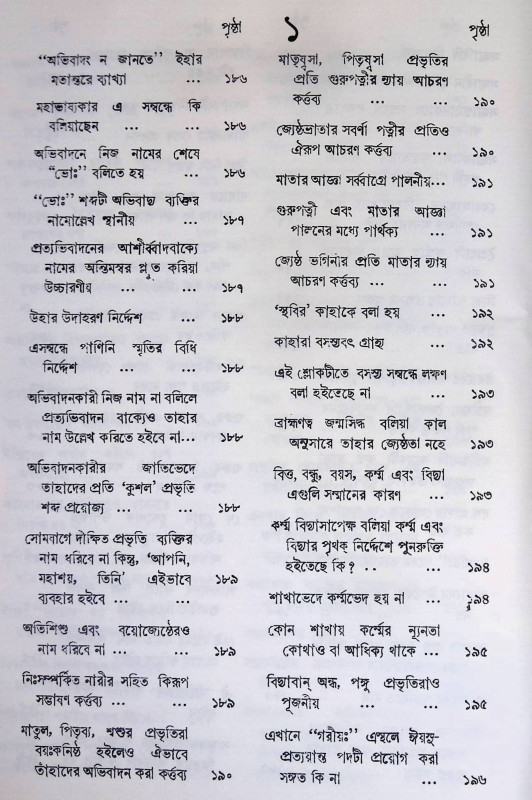 পৃষ্ঠা
"অভিবাদং ন জানতে" ইহার
মতান্তরে ব্যাখ্যা ... ১৮৬
মহাভাষ্যকার এ সম্বন্ধে কি
বলিয়াছেন ... ... ১৮৬
অভিবাদনে নিজ নামের শেষে
"ভোঃ" বলিতে হয় ... ১৮৬
"ভোঃ" শব্দটী অভিবাদ্য ব্যক্তির
নামোল্লেখ স্থানীয় ... ১৮৭
প্রত্যভিবাদনের আশীর্ব্বাদবাক্যে
নামের অন্তিমস্বর প্লুত করিয়া
উচ্চারণীয় ... ... ১৮৭
উহার উদাহরণ নির্দ্দেশ ... ১৮৮
এসম্বন্ধে পাণিনি স্মৃতির বিধি
নির্দ্দেশ ... ... ১৮৮
অভিবাদনকারী নিজ নাম না বলিলে
প্রত্যভিবাদন বাক্যেও তাহার
নাম উল্লেখ করিতে হইবে না... ১৮৮
অভিবাদনকারীর জাতিভেদে
তাহাদের প্রতি 'কুশল' প্রভৃতি
শব্দ প্রয়োজ্য ... ... ১৮৮
সোমযাগে দীক্ষিত প্রভৃতি ব্যক্তির
নাম ধরিবে না কিন্তু, 'আপনি,
মহাশয়, তিনি' এইভাবে ১৮৯
ব্যবহার হইবে ...
অতিশিশু এবং বয়োজ্যেষ্ঠেরও
নাম ধরিবে না ... ... ১৮৯
নিঃসম্পর্কিত নারীর সহিত কিরূপ
সম্ভাষণ কর্ত্তব্য ... ... ১৮৯
মাতুল, পিতৃব্য, শ্বশুর প্রভৃতিরা
বয়ঃকনিষ্ঠ হইলেও ঐভাবে
তাঁহাদের অভিবাদন করা কর্ত্তব্য ১৯০
১
পৃষ্ঠা
মাতৃষ্বসা, পিতৃষ্বসা প্রভৃতির
প্রতি গুরুপত্নীর ন্যায় আচরণ
কর্ত্তব্য ... ... ১৯০
জ্যেষ্ঠভ্রাতার সবর্ণা পত্নীর প্রতিও
ঐরূপ আচরণ কর্ত্তব্য ... ১৯০
মাতার আজ্ঞা সর্ব্বাগ্রে পালনীয়... ১৯১
গুরুপত্নী এবং মাতার আজ্ঞা
পালনের মধ্যে পার্থক্য ... ১৯১
জ্যেষ্ঠ ভগিনীর প্রতি মাতার ন্যায়
আচরণ কর্ত্তব্য ... ... ১৯১
'স্থবির' কাহাকে বলা হয় ... ১৯২
কাহারা বসন্তবৎ গ্রাহ্য ... ১৯২
এই শ্লোকটীতে বসন্ত সম্বন্ধে লক্ষণ
বলা হইতেছে না ... ১৯৩
ব্রাহ্মণত্ব জন্মসিদ্ধ বলিয়া কাল
অনুসারে তাহার জ্যেষ্ঠতা নহে ১৯৩
বিত্ত, বন্ধু, বয়স, কর্ম্ম এবং বিদ্যা
এগুলি সম্মানের কারণ ... ১৯৩
কর্ম্ম বিদ্যাসাপেক্ষ বলিয়া কর্ম্ম এবং
বিদ্যার পৃথক্ নির্দ্দেশে পুনরুক্তি
হইতেছে কি? .. ... ১৯৪
শাখাভেদে কর্ম্মভেদ হয় না ... ১৯৪
কোন শাখায় কর্ম্মের ন্যূনতা
কোথাও বা আধিক্য থাকে ... ১৯৫
বিদ্যাবান্ অন্ধ, পঙ্গু প্রভৃতিরাও
পূজনীয় ... ... ১৯৫
এখানে "গরীয়ঃ" এস্থলে ঈয়সু-
প্রত্যয়ান্ত পদটী প্রয়োগ করা
সঙ্গত কি না ... ... ১৯৬